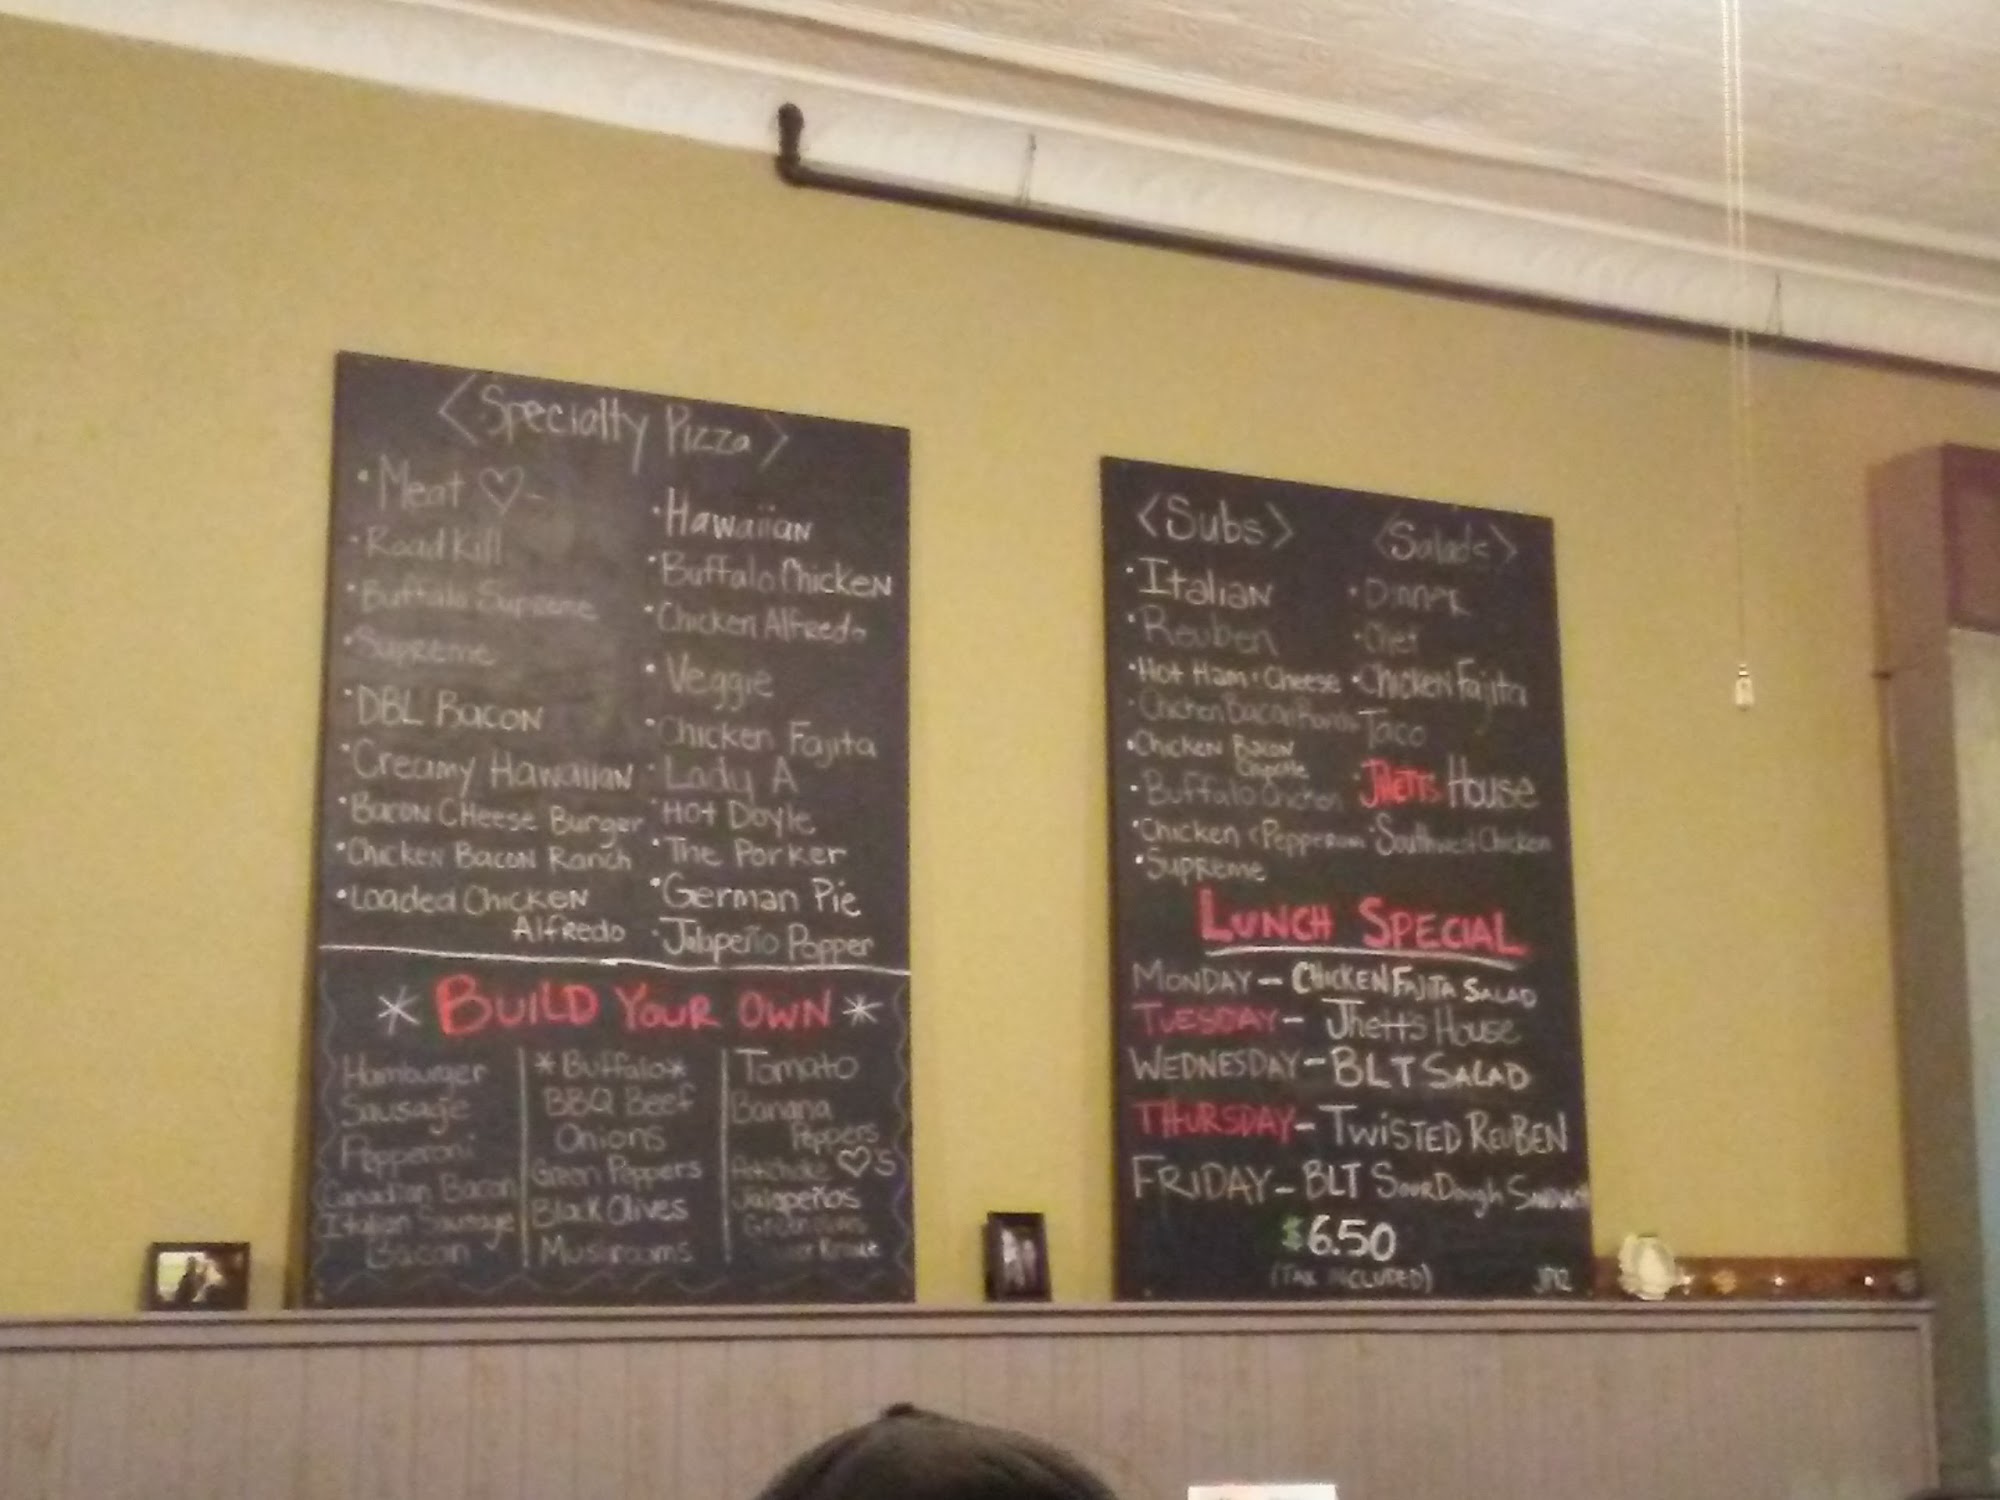 <Specialty Pizza>
· Meat ♡ -
· Road Kill
· Buffalo Supreme
· Supreme
· DBL Bacon
· Creamy Hawaiian
· Bacon CHeese Burger
· Chicken Bacon Ranch
· Loaded Chicken
Alfredo
· Hawaiian
· Buffalo Chicken
· Chicken Alfredo
· Veggie
· Chicken Fajita
· Lady A
· Hot Doyle
· The Porker
· German Pie
· Jalapeño Popper
* BUILD YOUR OWN *
Hamburger
Sausage
Pepperoni
Canadian Bacon
Italian Sausage
Bacon
*Buffalo*
BBQ Beef
Onions
Green Peppers
Black Olives
Mushrooms
Tomato
Banana
Peppers
Artichoke ♡'S
Jalapeños
Green
<Subs>
· Italian
· Reuben
· Hot Ham & Cheese
· Chicken Bacon Ranch
· Chicken Bacon
Chipotle
· Buffalo Chicken
· Chicken & Pepperoni
· Supreme
<Salads>
· Dinner
· Chef
· Chicken Fajita
· Taco
· Jhett's House
· Southwest Chicken
LUNCH SPECIAL
MONDAY - CHICKEN FAJITA SALAD
TUESDAY - Jhett's House
WEDNESDAY - BLT SALAD
THURSDAY - TWISTED REUBEN
FRIDAY - BLT SOURDough SANDWICH
$6.50
(TAX INCLUDED)